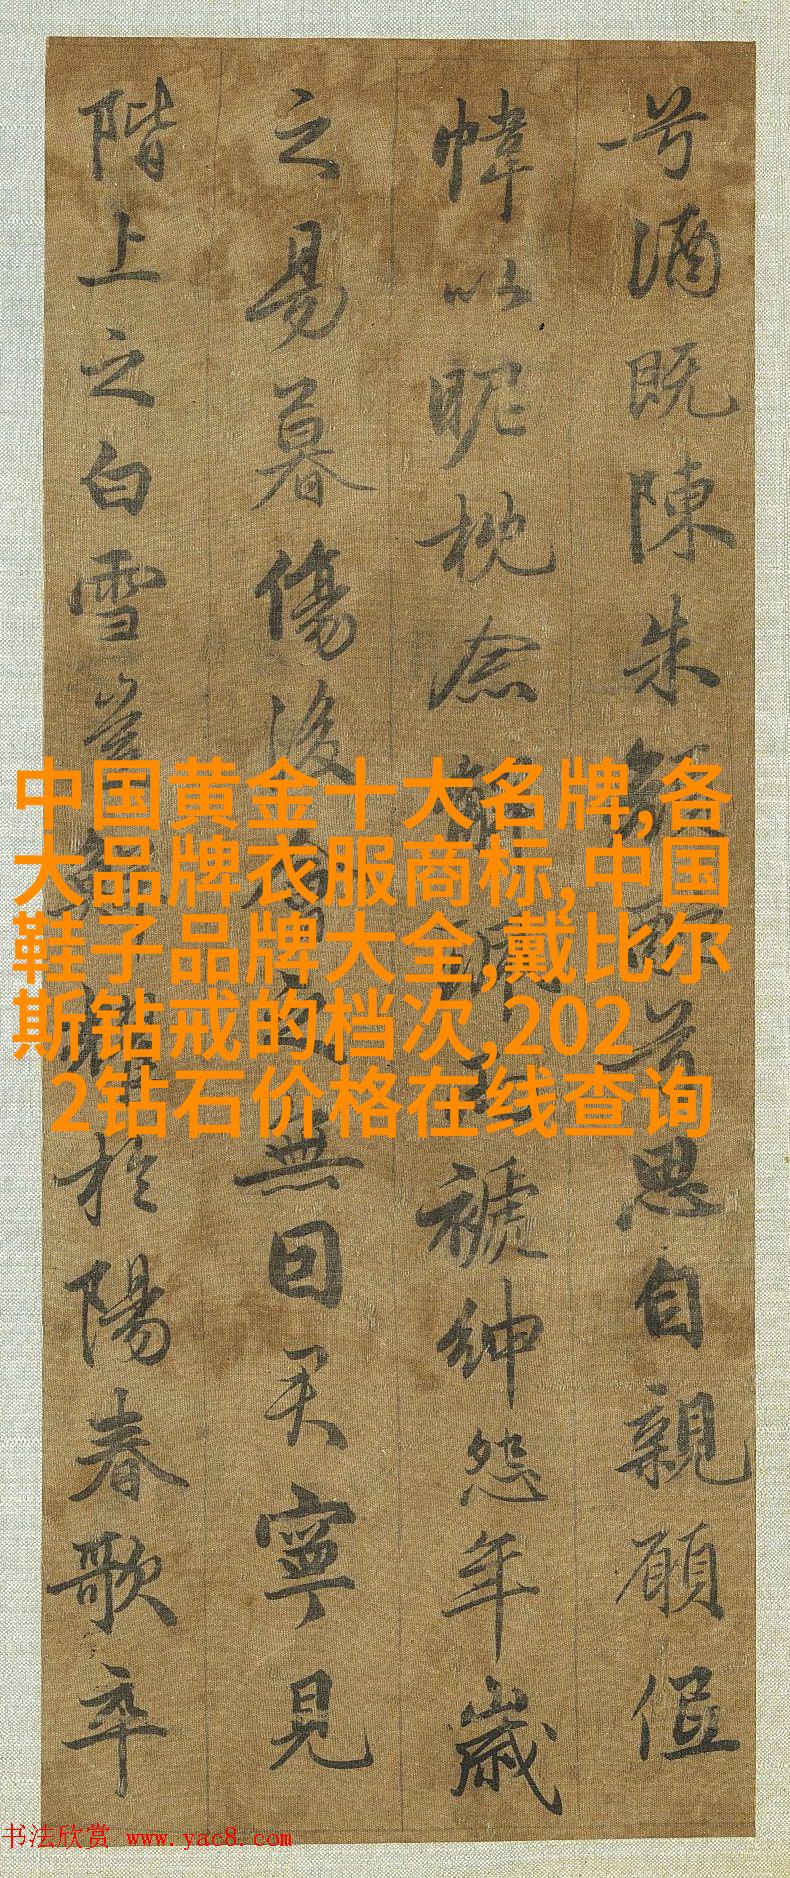 兮酒既陳朱顏酡兮思自親願低
幃以昵枕念解褫紳怨年歲
之易暮傷後會之無因君寧見
階上之白雪豈鮮耀於陽春歌卒
中国黄金十大名牌,各
大品牌衣服商标,中国
鞋子品牌大全,戴比尔
斯钻戒的档次,202
2钻石价格在线查询
书法欣赏 www.yac8.com